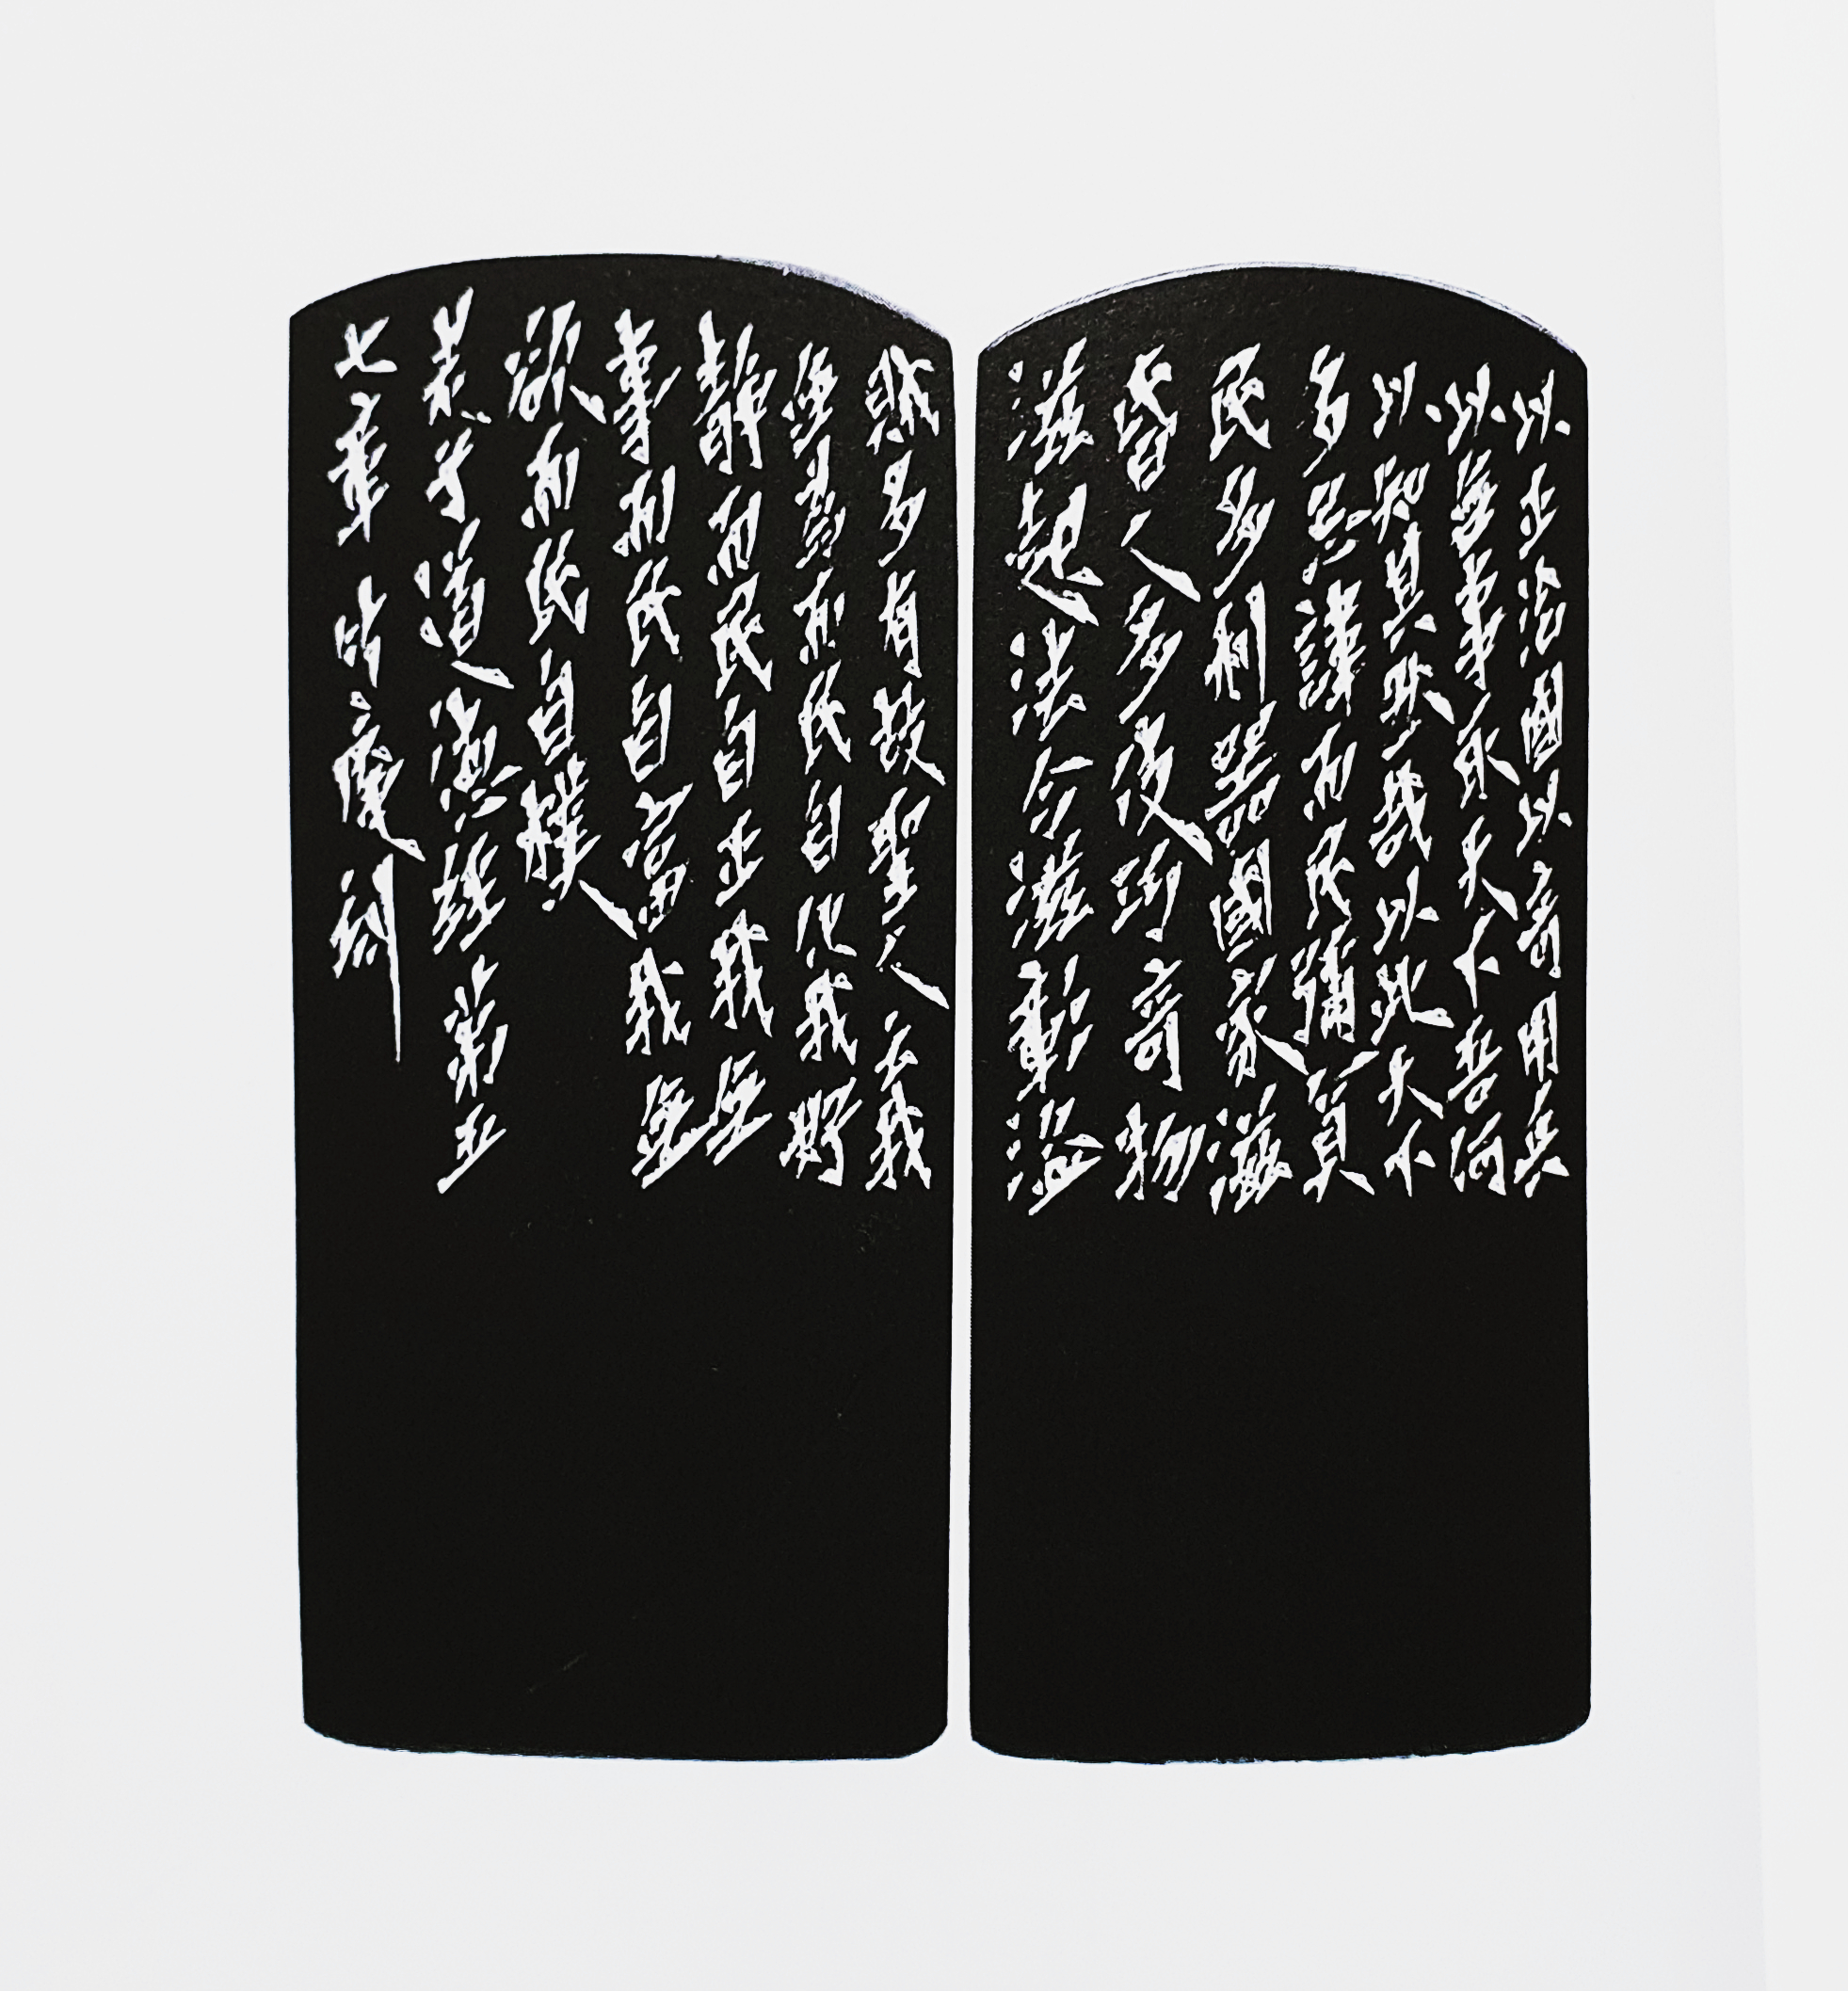 以正治國以奇用兵
以無事取天下吾何
以知其然哉以此天下
多忌諱而民彌貧
民多利器國家滋
昏人多伎巧奇物
滋起法令滋彰盜
賊多有故聖人云我
無為而民自化我好
靜而民自正我無
事而民自富我無
欲而民自樸
老子道德經第五
七章 庵刻